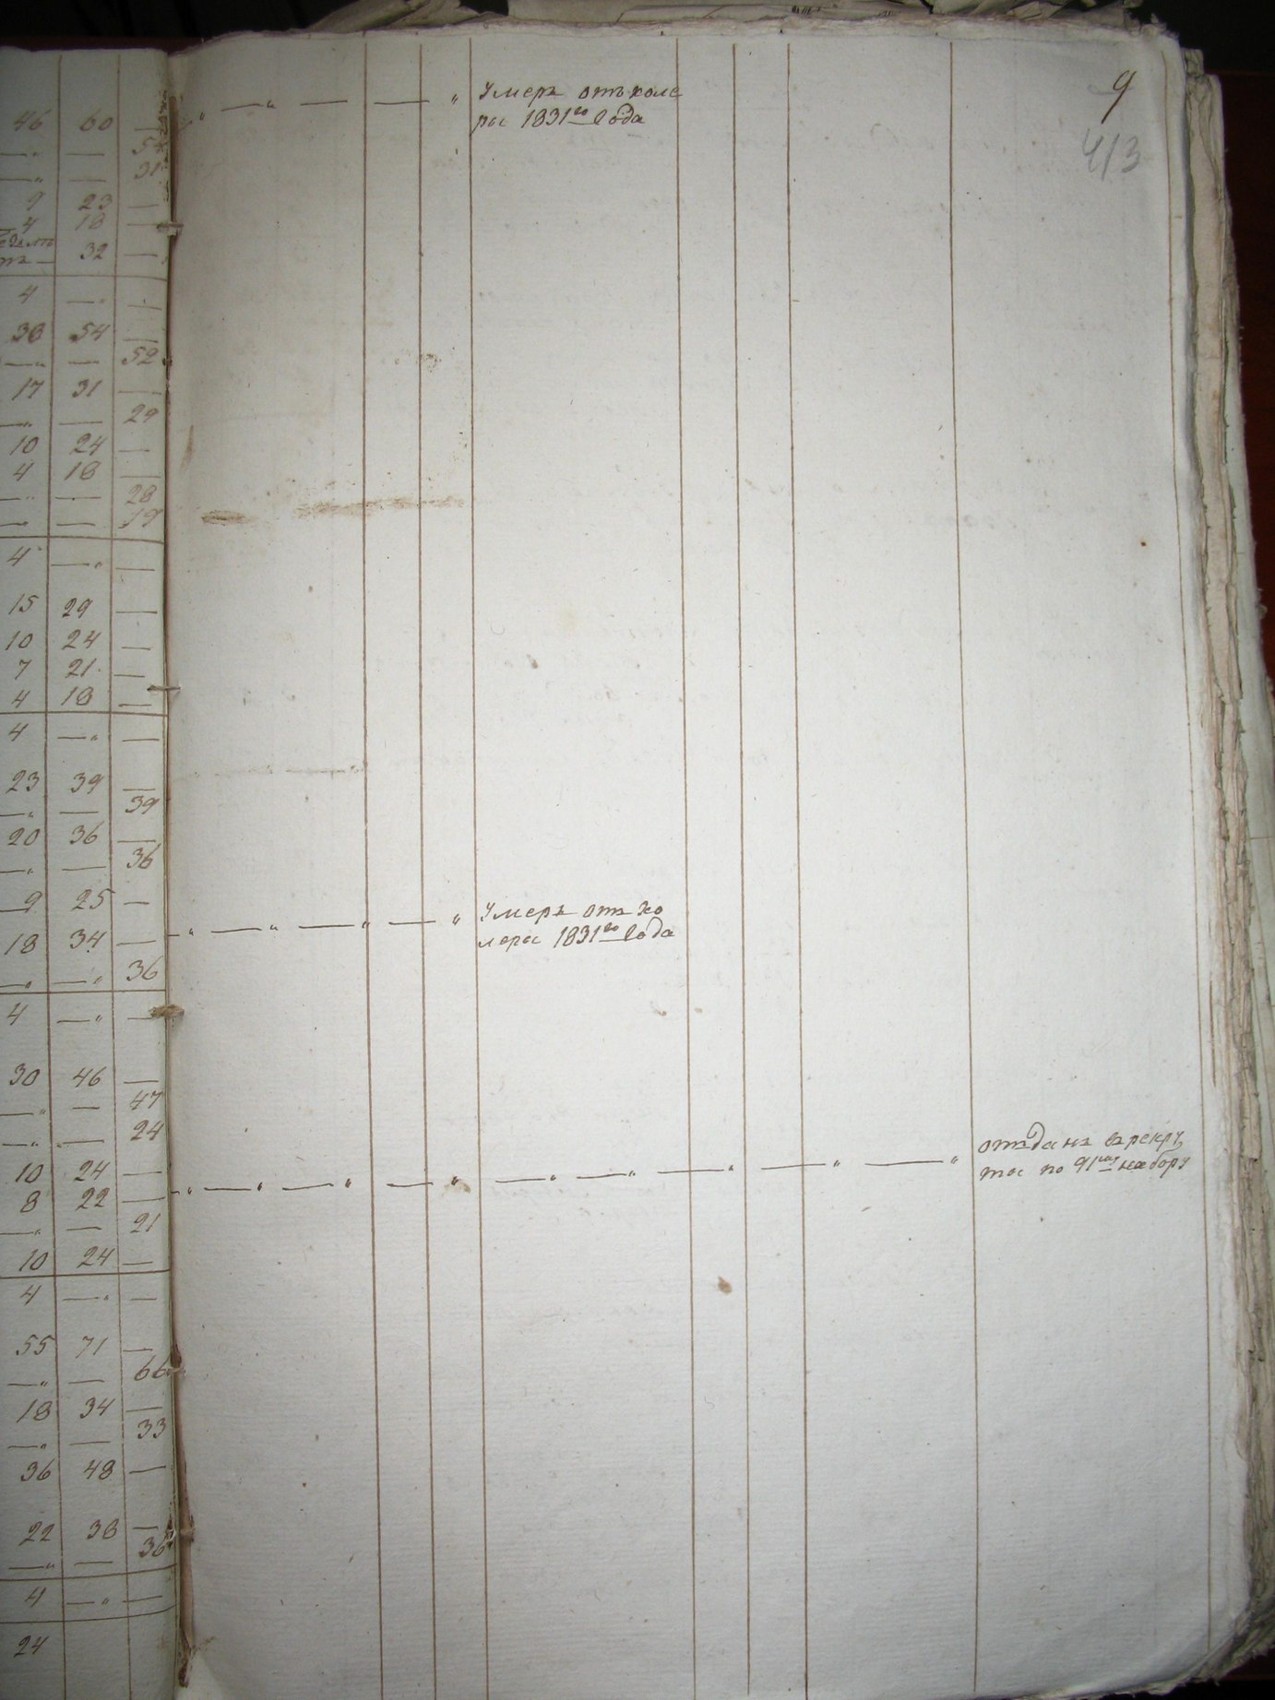 9
413
Умеръ отъ холе
ры 1831го года
Умеръ отъ хо
леры 1831го года
отъданъ въ рекру
ты по 91му набору
46 60 —
— — 54
— — 31
9 23 —
4 18 —
32 —
4 — —
38 54 —
— — 52
17 31 —
— — 29
10 24 —
4 18 —
— — 28
— — 19
4 — —
15 29 —
10 24 —
7 21 —
4 18 —
4 — —
23 39 —
— — 39
20 36 —
— — 36
9 25 —
18 34 —
— — 36
4 — —
30 46 —
— — 47
— — 24
10 24 —
8 22 —
— — 21
10 24 —
4 — —
55 71 —
— — 66
18 34 —
— — 33
36 48 —
22 38 —
— — 36
4 — —
24